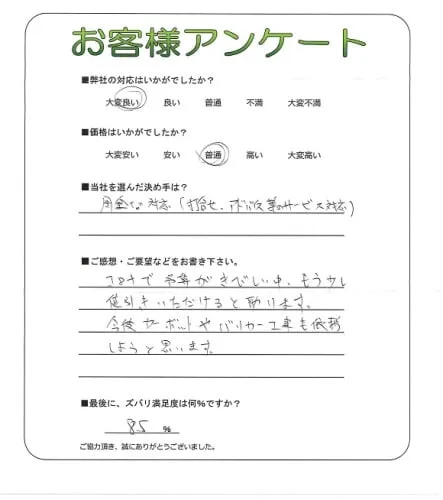 お客様アンケート
■弊社の対応はいかがでしたか?
大変良い 良い 普通 不満 大変不満
■価格はいかがでしたか?
大変安い 安い 普通 高い 大変高い
■当社を選んだ決め手は?
対応(打合せ、等のサービス対応)
■ご感想・ご要望などをお書き下さい。
コロナで予算がきびしい中、もう少し
値引きいただけると助ります。
今後カーポットやバリカー工事も依頼
しようと思います。
■最後に、ズバリ満足度は何%ですか?
85 %
ご協力頂き、誠にありがとうございました。